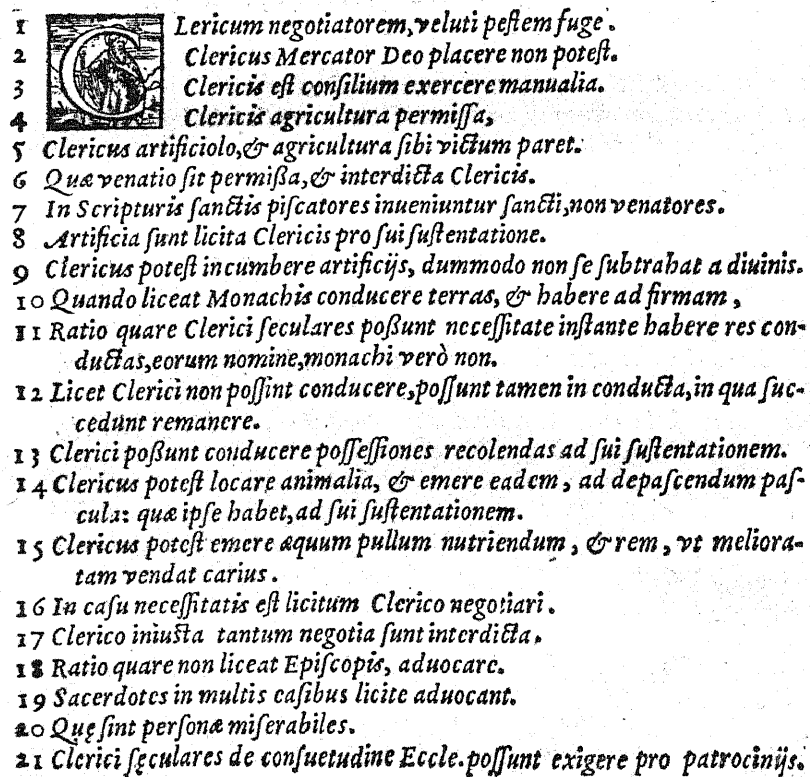 1 CLericum negotiatorem, veluti peſtem fuge.
2 Clericus Mercator Deo placere non poteſt.
3 Clericis eſt conſilium exercere manualia.
4 Clericis agricultura permiſſa,
5 Clericus artificiolo, & agricultura ſibi victum paret.
6 Quæ venatio ſit permißa, & interdicta Clericis.
7 In Scripturis ſanctis piſcatores inueniuntur ſancti, non venatores.
8 Artificia ſunt licita Clericis pro ſui ſuſtentatione.
9 Clericus poteſt incumbere artificijs, dummodo non ſe ſubtrahat a diuinis.
10 Quando liceat Monachis conducere terras, & habere ad firmam,
11 Ratio quare Clerici ſeculares poßunt neceſſitate inſtante habere res con-
ductas, eorum nomine, monachi verò non.
12 Licet Clerici non poſſint conducere, poſſunt tamen in conducta, in qua ſuc-
cedunt remanere.
13 Clerici poßunt conducere poſſeſſiones recolendas ad ſui ſuſtentationem.
14 Clericus poteſt locare animalia, & emere eadem, ad depaſcendum paſ-
cula: quæ ipſe habet, ad ſui ſuſtentationem.
15 Clericus poteſt emere æquum pullum nutriendum, & rem, vt meliora-
tam vendat carius.
16 In caſu neceſſitatis eſt licitum Clerico negotiari.
17 Clerico iniuſta tantum negotia ſunt interdicta.
18 Ratio quare non liceat Epiſcopis, aduocare.
19 Sacerdotes in multis caſibus licite aduocant.
20 Quę ſint perſonæ miſerabiles.
21 Clerici ſęculares de conſuetudine Eccle. poſſunt exigere pro patrocinijs.